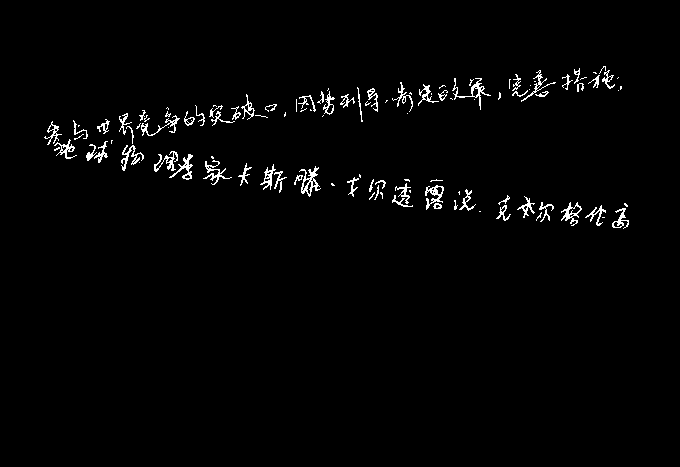 参与世界竞争的突破口，因势利导，制定政策，完善措施，
地球物理学家卡斯腾·戈尔透露说，克尔格伦高